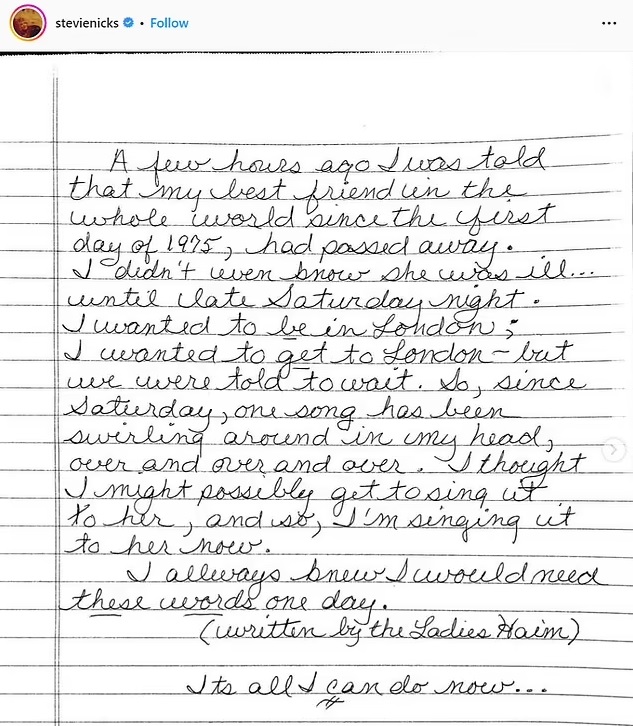 stevienicks • Follow
A few hours ago I was told
that my best friend in the
whole world since the first
day of 1975, had passed away.
I didn't even know she was ill...
until late Saturday night.
I wanted to be in London;
I wanted to get to London – but
we were told to wait. So, since
Saturday, one song has been
swirling around in my head,
over and over and over. I thought
I might possibly get to sing it
to her, and so, I'm singing it
to her now.
I allways knew I would need
these words one day.
(written by the Ladies Haim)
Its all I can do now...